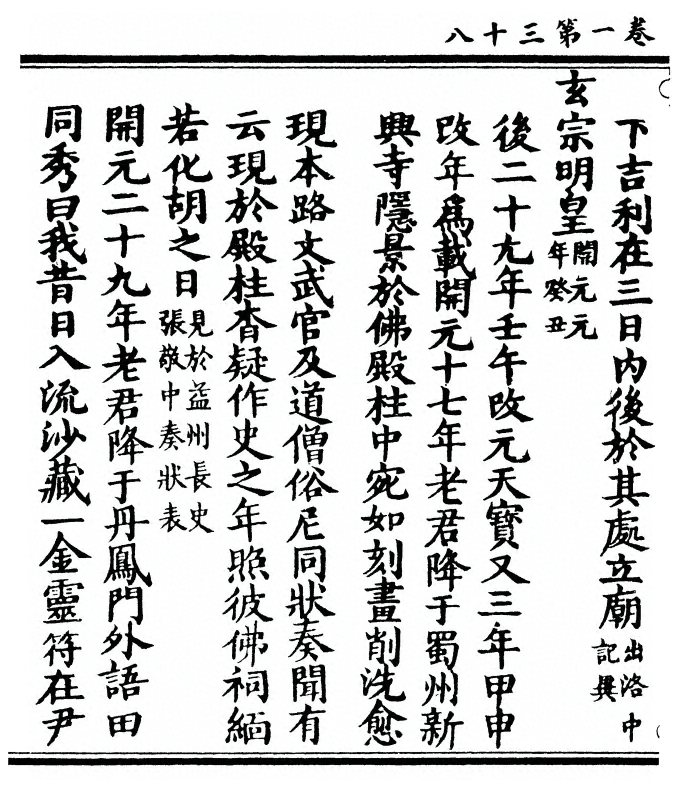 卷一第三十八
下吉利在三日內後於其處立廟出洛中記異
玄宗明皇開元元年癸丑
後二十九年壬午改元天寶又三年甲申
改年爲載開元十七年老君降于蜀州新
興寺隱景於佛殿柱中宛如刻畫削洗愈
現本路文武官及道僧俗尼同狀奏聞有
云現於殿柱杳疑作史之年照彼佛祠緬
若化胡之日見於益州長史張敬中奏狀表
開元二十九年老君降于丹鳳門外語田
同秀曰我昔日入流沙藏一金靈符在尹